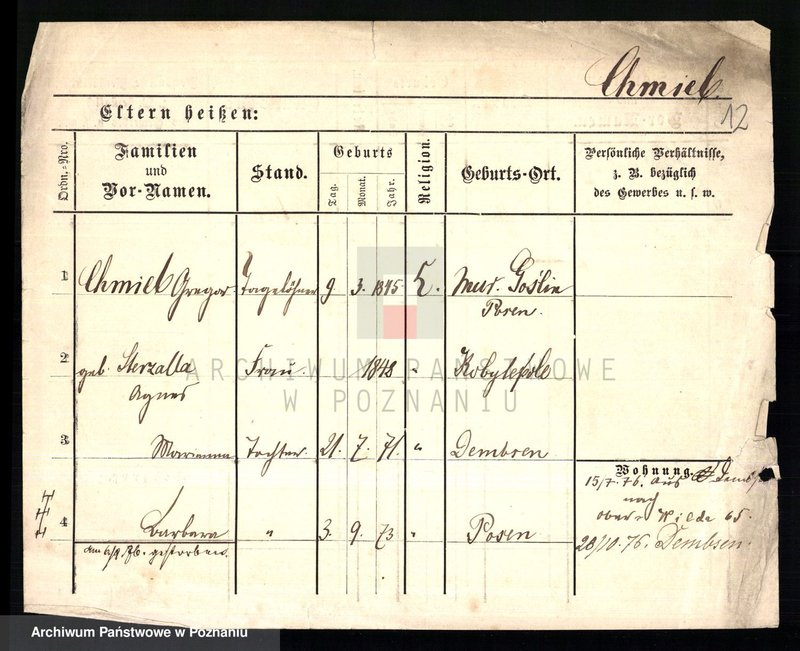 Chmiel.
12
Eltern heißen:
Ordn.-Nro.
Familien
und
Vor-Namen.
Stand.
Geburts
Tag.
Monat.
Jahr.
Religion.
Geburts-Ort.
Persönliche Verhältnisse,
z. B. bezüglich
des Gewerbes u. s. w.
1 Chmiel Gregor Tagelöhner 9. 3. 1845 k. Mur. Goślin
Posen.
2 geb. Sterzalla Frau. 1848 " Kobylepole
Agnes
3 Marianna Tochter 21. 7. 71. " Dembsen
Wohnung.
15/7. 76. aus
nach
ober-Wilda 65.
4 Barbara " 3. 9. 73 " Posen
28/10. 76. Dembsen.
gestorben.
ARCHIWUM PAŃSTWOWE
W POZNANIU
Archiwum Państwowe w Poznaniu